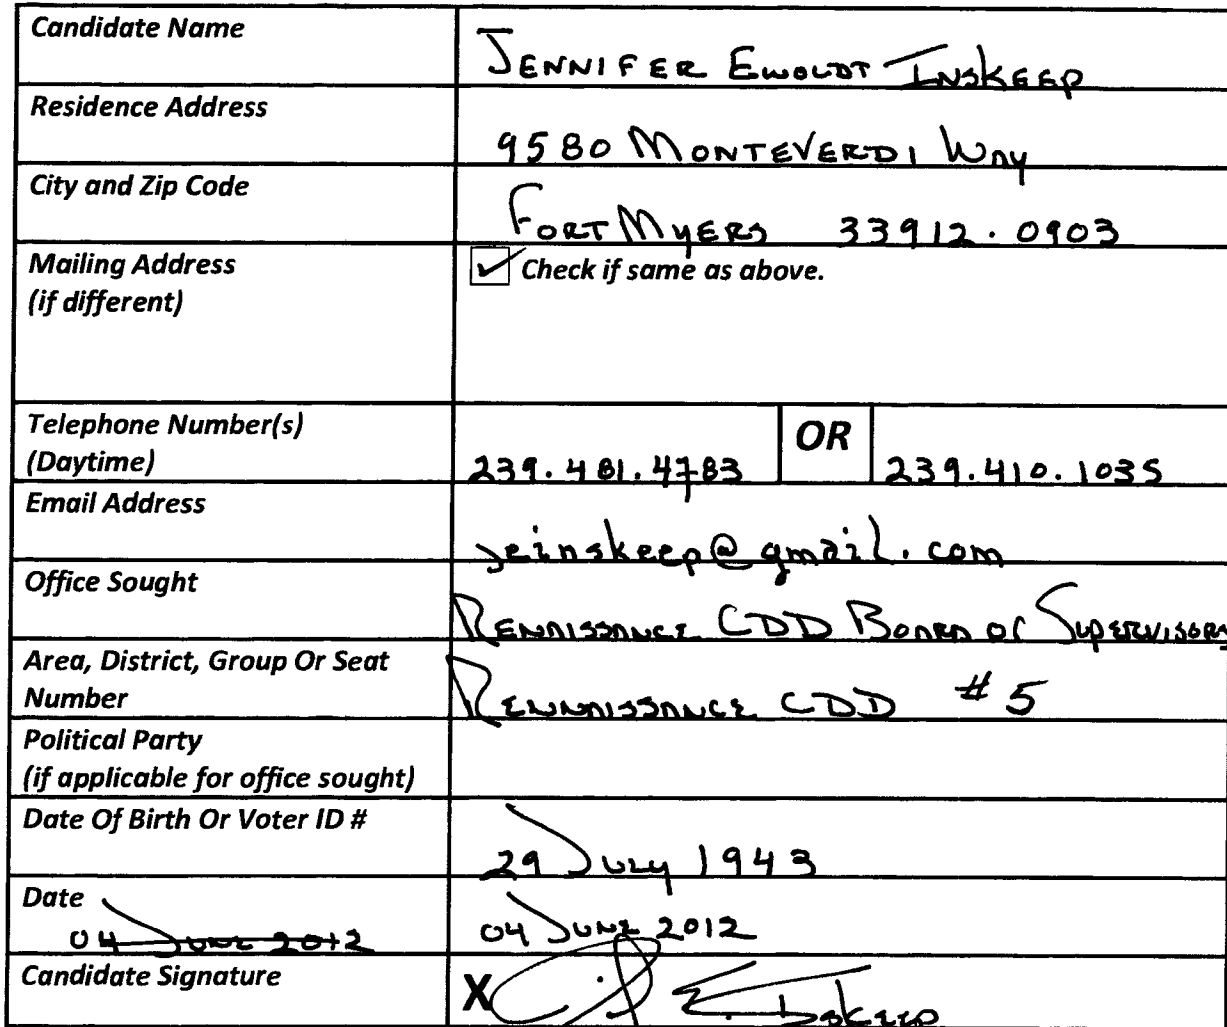 Candidate Name JENNIFER EWOLDT INSKEEP
Residence Address
9580 MONTEVERDI WAY
City and Zip Code
FORT MYERS 33912.0903
Mailing Address ✓ Check if same as above.
(if different)
Telephone Number(s) OR
(Daytime) 239.481.4783 239.410.1035
Email Address
jeinskeep@gmail.com
Office Sought
RENAISSANCE CDD BOARD OF SUPERVISORS
Area, District, Group Or Seat
Number RENNAISSANCE CDD #5
Political Party
(if applicable for office sought)
Date Of Birth Or Voter ID #
29 JULY 1943
Date
04 JUNE 2012 04 JUNE 2012
Candidate Signature X J E. Inskeep